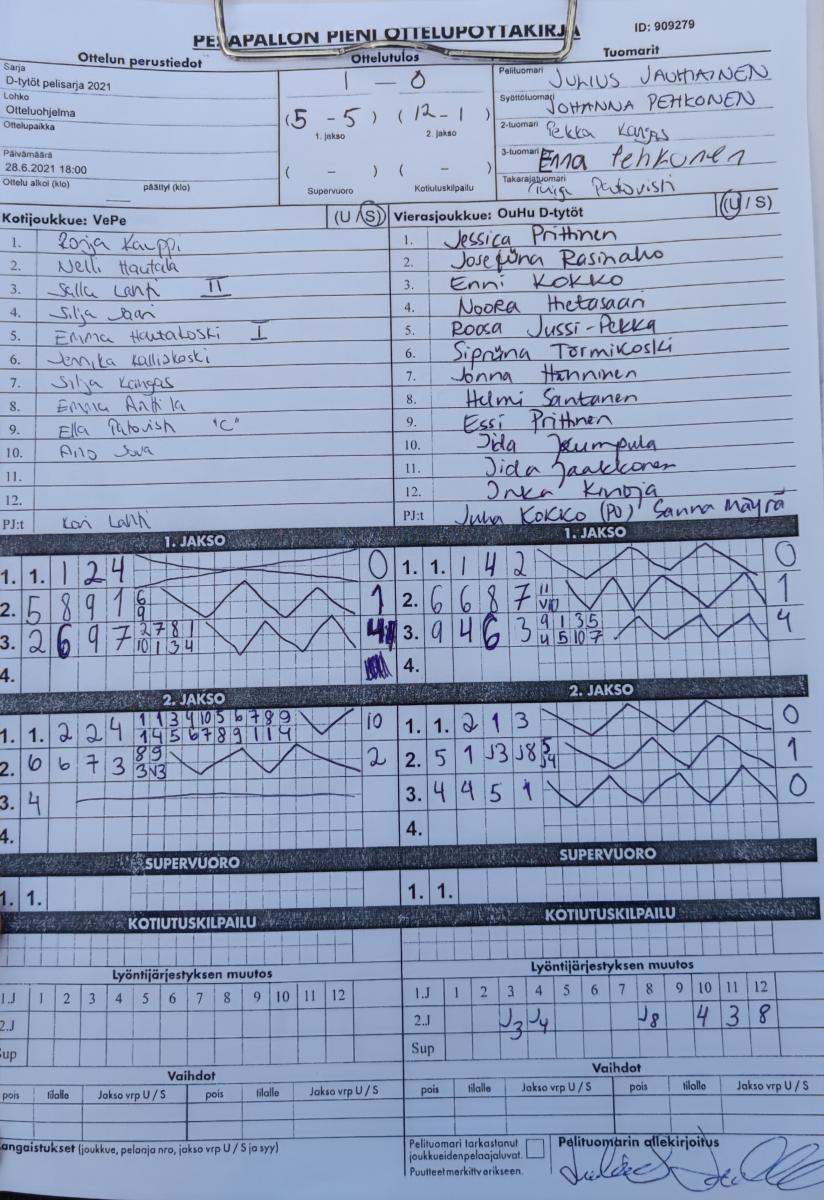 PESÄPALLON PIENI OTTELUPÖYTÄKIRJA
ID: 909279
Ottelun perustiedot
Sarja
D-tytöt pelisarja 2021
Lohko
Otteluohjelma
Ottelupaikka
Päivämäärä
28.6.2021 18:00
Ottelu alkoi (klo) päättyi (klo)
Ottelutulos
1 - 0
(5 - 5) (12 - 1)
1. jakso 2. jakso
( - ) ( - )
Supervuoro Kotiutuskilpailu
Tuomarit
Pelituomari JULIUS JAUHIAINEN
Syöttötuomari JOHANNA PEHKONEN
2-tuomari Pekka Kangas
3-tuomari Enna Pehkonen
Takarajatuomari
Kotijoukkue: VePe (U / S)
1. Ronja Kauppi
2. Nelli Hautala
3. Salla Lahti II
4. Silja
5. Emma Hautakoski I
6. Jennika Kalliokoski
7. Silja Kangas
8. Emma Anttila
9. Ella "C"
10. Aino
11.
12.
PJ:t Kari Lahti
Vierasjoukkue: OuHu D-tytöt (U / S)
1. Jessica Prittinen
2. Josefiina Rasinaho
3. Enni KOKKO
4. Noora Hietasaari
5. Roosa Jussi-Pekka
6. Törmikoski
7. Jonna Hänninen
8. Helmi Santanen
9. Essi Prittinen
10. Iida Kumpula
11. Iida Jaakkonen
12. Inka Kinoja
PJ:t Juha KOKKO (PJ) Sanna Mäyrä
1. JAKSO
1. 1. 1 2 4 0
2. 5 8 9 1 6 9 1
3. 2 6 9 7 2 7 8 1 10 1 3 4 4
4.
1. JAKSO
1. 1. 1 4 2 0
2. 6 6 8 7 11 1
3. 9 4 6 3 9 1 3 5 4 5 10 7 4
4.
2. JAKSO
1. 1. 2 2 4 1 1 3 4 10 5 6 7 8 9 1 4 5 6 7 8 9 1 1 4 10
2. 6 6 7 3 8 9 3 2
3. 4
4.
2. JAKSO
1. 1. 2 1 3 0
2. 5 1 J3 J8 5 J4 1
3. 4 4 5 1 0
4.
SUPERVUORO
1. 1.
SUPERVUORO
1. 1.
KOTIUTUSKILPAILU
KOTIUTUSKILPAILU
Lyöntijärjestyksen muutos
1.J 1 2 3 4 5 6 7 8 9 10 11 12
2.J
Sup
Lyöntijärjestyksen muutos
1.J 1 2 3 4 5 6 7 8 9 10 11 12
2.J J3 J4 J8 4 3 8
Sup
Vaihdot
pois tilalle Jakso vrp U / S pois tilalle Jakso vrp U / S
Vaihdot
pois tilalle Jakso vrp U / S pois tilalle Jakso vrp U / S
angaistukset (joukkue, pelaaja nro, jakso vrp U / S ja syy)
Pelituomari tarkastanut
joukkueidenpelaajaluvat.
Puutteet merkitty erikseen.
Pelituomarin allekirjoitus